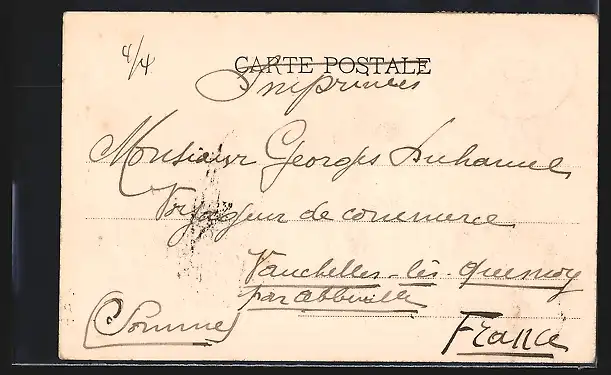 4/4
CARTE POSTALE
Imprimés
Monsieur Georges Duhamel
Voyageur de commerce
Vauchelles-lès-Quesnoy
par Abbeville
(Somme)
France